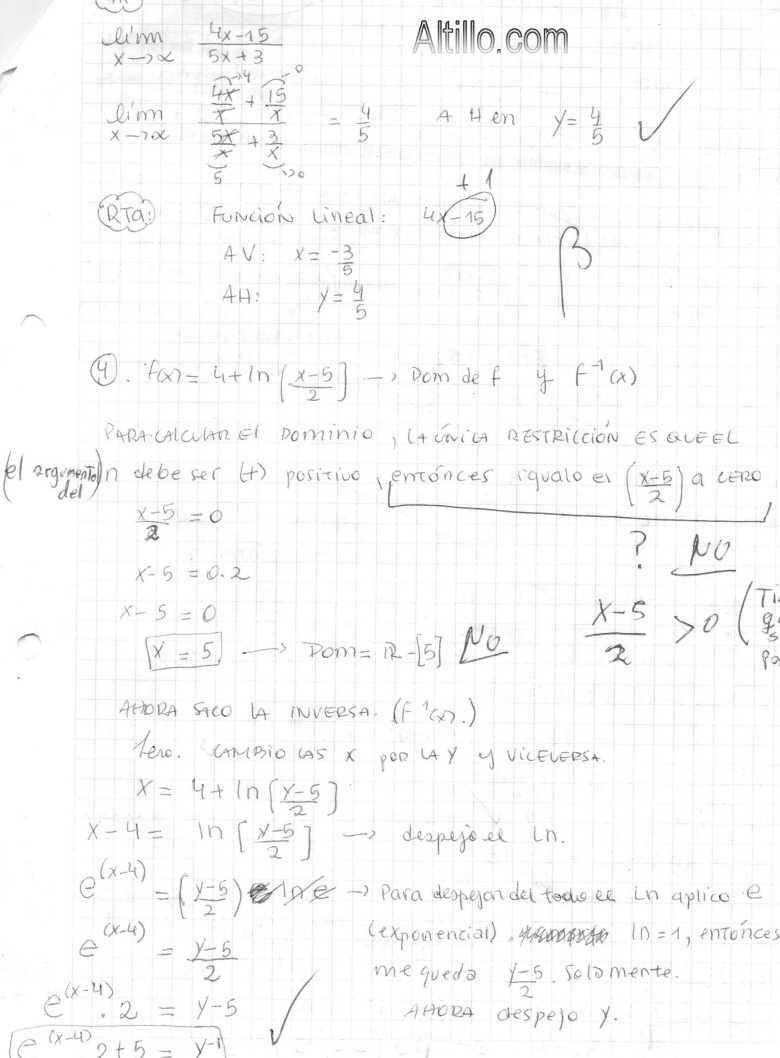 lím x→∝ 4x-15 / 5x+3
Altillo.com
lím x→∝ (4x/x + 15/x) / (5x/x + 3/x) = 4/5 A H en y= 4/5 ✓
→4 →0
5 →0
+ 1
RTA: FUNCIÓN Lineal: 4x-15
AV: x= -3/5
AH: y= 4/5
β
④. f(x)= 4+ln[x-5/2] → Dom de f y f⁻¹(x)
PARA CALCULAR El DOMINIO, LA ÚNICA RESTRICCIÓN ES QUE EL
(el argumento del) ln debe ser (+) positivo, entónces igualo el (x-5/2) a CERO
x-5/2 = 0
? NO
x-5 = 0.2
x-5 = 0
x-5/2 >0
x = 5 → Dom= R-[5] NO
AHORA SACO LA INVERSA. (F⁻¹(x).)
1ero. CAMBIO LAS X POR LA Y Y VICEVERSA.
x = 4+ln[y-5/2]
x-4 = ln[y-5/2] → despejo el Ln.
e^(x-4) = (y-5/2) ln e → Para despejar del todo el Ln aplico e
e^(x-4) = y-5/2 (exponencial). ln=1, entónces
me queda y-5/2. Solamente.
e^(x-4) . 2 = y-5 ✓ AHORA despejo y.
e^(x-4) 2+5 = y⁻¹